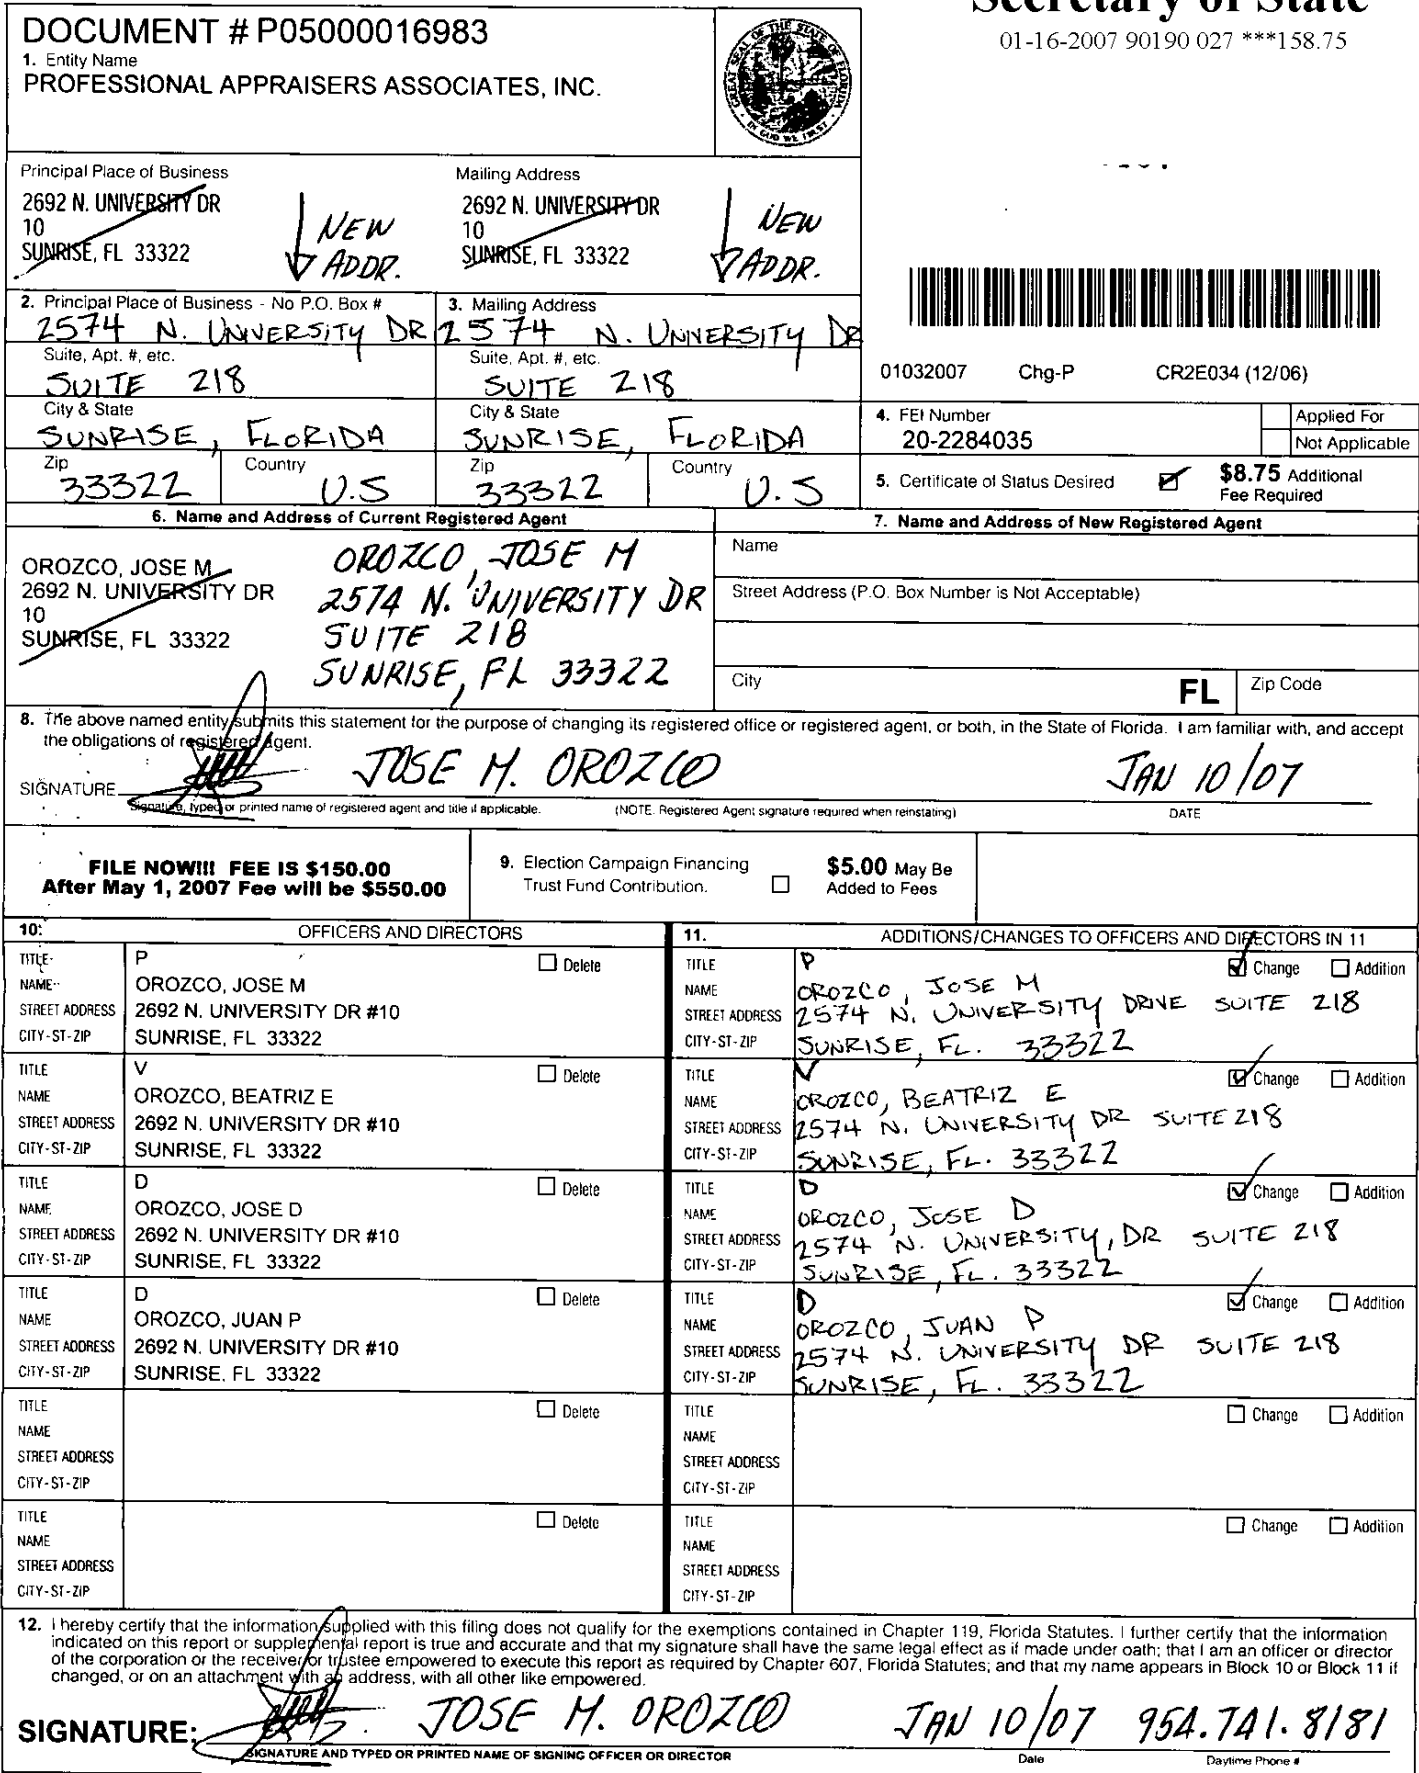 Secretary of State
01-16-2007 90190 027 ***158.75
DOCUMENT # P05000016983
1. Entity Name
PROFESSIONAL APPRAISERS ASSOCIATES, INC.
GREAT SEAL OF THE STATE OF FLORIDA
IN GOD WE TRUST
Principal Place of Business
2692 N. UNIVERSITY DR
10
SUNRISE, FL 33322
NEW
ADDR.
Mailing Address
2692 N. UNIVERSITY DR
10
SUNRISE, FL 33322
NEW
ADDR.
2. Principal Place of Business - No P.O. Box #
2574 N. UNIVERSITY DR
3. Mailing Address
2574 N. UNIVERSITY DR
Suite, Apt. #, etc.
SUITE 218
Suite, Apt. #, etc.
SUITE 218
City & State
SUNRISE, FLORIDA
City & State
SUNRISE, FLORIDA
Zip
33322
Country
U.S
Zip
33322
Country
U.S
01032007 Chg-P CR2E034 (12/06)
4. FEI Number
20-2284035
Applied For
Not Applicable
5. Certificate of Status Desired
$8.75 Additional
Fee Required
6. Name and Address of Current Registered Agent
OROZCO, JOSE M
2692 N. UNIVERSITY DR
10
SUNRISE, FL 33322
OROZCO, JOSE M
2574 N. UNIVERSITY DR
SUITE 218
SUNRISE, FL 33322
7. Name and Address of New Registered Agent
Name
Street Address (P.O. Box Number is Not Acceptable)
City
FL
Zip Code
8. The above named entity submits this statement for the purpose of changing its registered office or registered agent, or both, in the State of Florida. I am familiar with, and accept
the obligations of registered agent.
SIGNATURE
JOSE M. OROZCO
JAN 10/07
Signature, typed or printed name of registered agent and title if applicable.
(NOTE. Registered Agent signature required when reinstating)
DATE
FILE NOW!!! FEE IS $150.00
After May 1, 2007 Fee will be $550.00
9. Election Campaign Financing
Trust Fund Contribution.
$5.00 May Be
Added to Fees
10. OFFICERS AND DIRECTORS
TITLE P Delete
NAME OROZCO, JOSE M
STREET ADDRESS 2692 N. UNIVERSITY DR #10
CITY-ST-ZIP SUNRISE, FL 33322
TITLE V Delete
NAME OROZCO, BEATRIZ E
STREET ADDRESS 2692 N. UNIVERSITY DR #10
CITY-ST-ZIP SUNRISE, FL 33322
TITLE D Delete
NAME OROZCO, JOSE D
STREET ADDRESS 2692 N. UNIVERSITY DR #10
CITY-ST-ZIP SUNRISE, FL 33322
TITLE D Delete
NAME OROZCO, JUAN P
STREET ADDRESS 2692 N. UNIVERSITY DR #10
CITY-ST-ZIP SUNRISE, FL 33322
TITLE Delete
NAME
STREET ADDRESS
CITY-ST-ZIP
TITLE Delete
NAME
STREET ADDRESS
CITY-ST-ZIP
11. ADDITIONS/CHANGES TO OFFICERS AND DIRECTORS IN 11
TITLE P Change Addition
NAME OROZCO, JOSE M
STREET ADDRESS 2574 N. UNIVERSITY DRIVE SUITE 218
CITY-ST-ZIP SUNRISE, FL. 33322
TITLE V Change Addition
NAME OROZCO, BEATRIZ E
STREET ADDRESS 2574 N. UNIVERSITY DR SUITE 218
CITY-ST-ZIP SUNRISE, FL. 33322
TITLE D Change Addition
NAME OROZCO, JOSE D
STREET ADDRESS 2574 N. UNIVERSITY, DR SUITE 218
CITY-ST-ZIP SUNRISE, FL. 33322
TITLE D Change Addition
NAME OROZCO, JUAN P
STREET ADDRESS 2574 N. UNIVERSITY DR SUITE 218
CITY-ST-ZIP SUNRISE, FL. 33322
TITLE Change Addition
NAME
STREET ADDRESS
CITY-ST-ZIP
TITLE Change Addition
NAME
STREET ADDRESS
CITY-ST-ZIP
12. I hereby certify that the information supplied with this filing does not qualify for the exemptions contained in Chapter 119, Florida Statutes. I further certify that the information
indicated on this report or supplemental report is true and accurate and that my signature shall have the same legal effect as if made under oath; that I am an officer or director
of the corporation or the receiver or trustee empowered to execute this report as required by Chapter 607, Florida Statutes; and that my name appears in Block 10 or Block 11 if
changed, or on an attachment with an address, with all other like empowered.
SIGNATURE:
JOSE M. OROZCO JAN 10/07 954.741.8181
SIGNATURE AND TYPED OR PRINTED NAME OF SIGNING OFFICER OR DIRECTOR
Date
Daytime Phone #